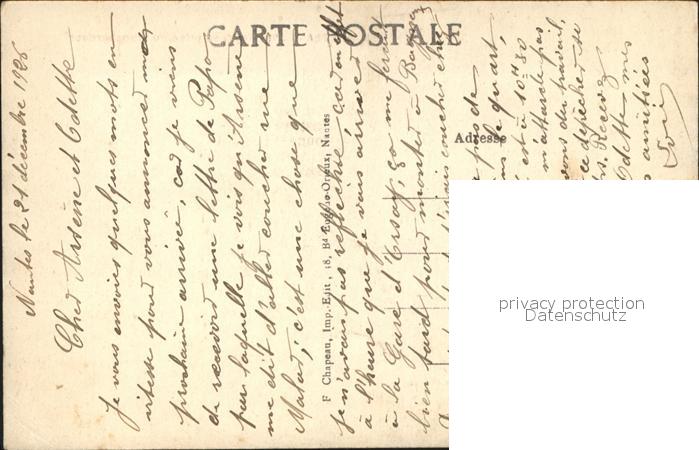 CARTE POSTALE
Adresse
F Chapeau, Imp.-Edit, 18, Bd Eugène-Orieux, Nantes
Nantes le 21 décembre 1926
Cher Arsène et Odette
Je vous envoie quelques mots en
vitesse pour vous annoncer ma
prochaine arrivée, car je viens
de recevoir une lettre de Papa
par laquelle je vois qu'Arsène
me dit d'aller coucher rue
Malar, c'est une chose que
je n'avais pas réfléchi car en effet
à l'heure que je vais arriver
à la Gare d'Orsay, ça me ferait
bien tard pour monter à
j'irais coucher chez
de
le quart,
est à 10 H 30
m'attarde pas
avons du travail,
me dépêcher de
Recevez
Odette mes
amitiés
privacy protection
Datenschutz